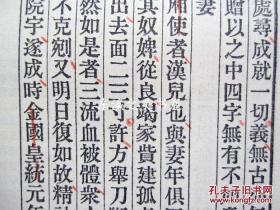 處尋成就一切義無古
贈以之中四字無有不
妻
厢使者漢兒也與妻年俱
其奴婢從良竭家貲建孤
出去面二三寸許方舉刀
然如是者三流血被體衆
不克剜又明日復如故精
院字遂成時金國皇統元年